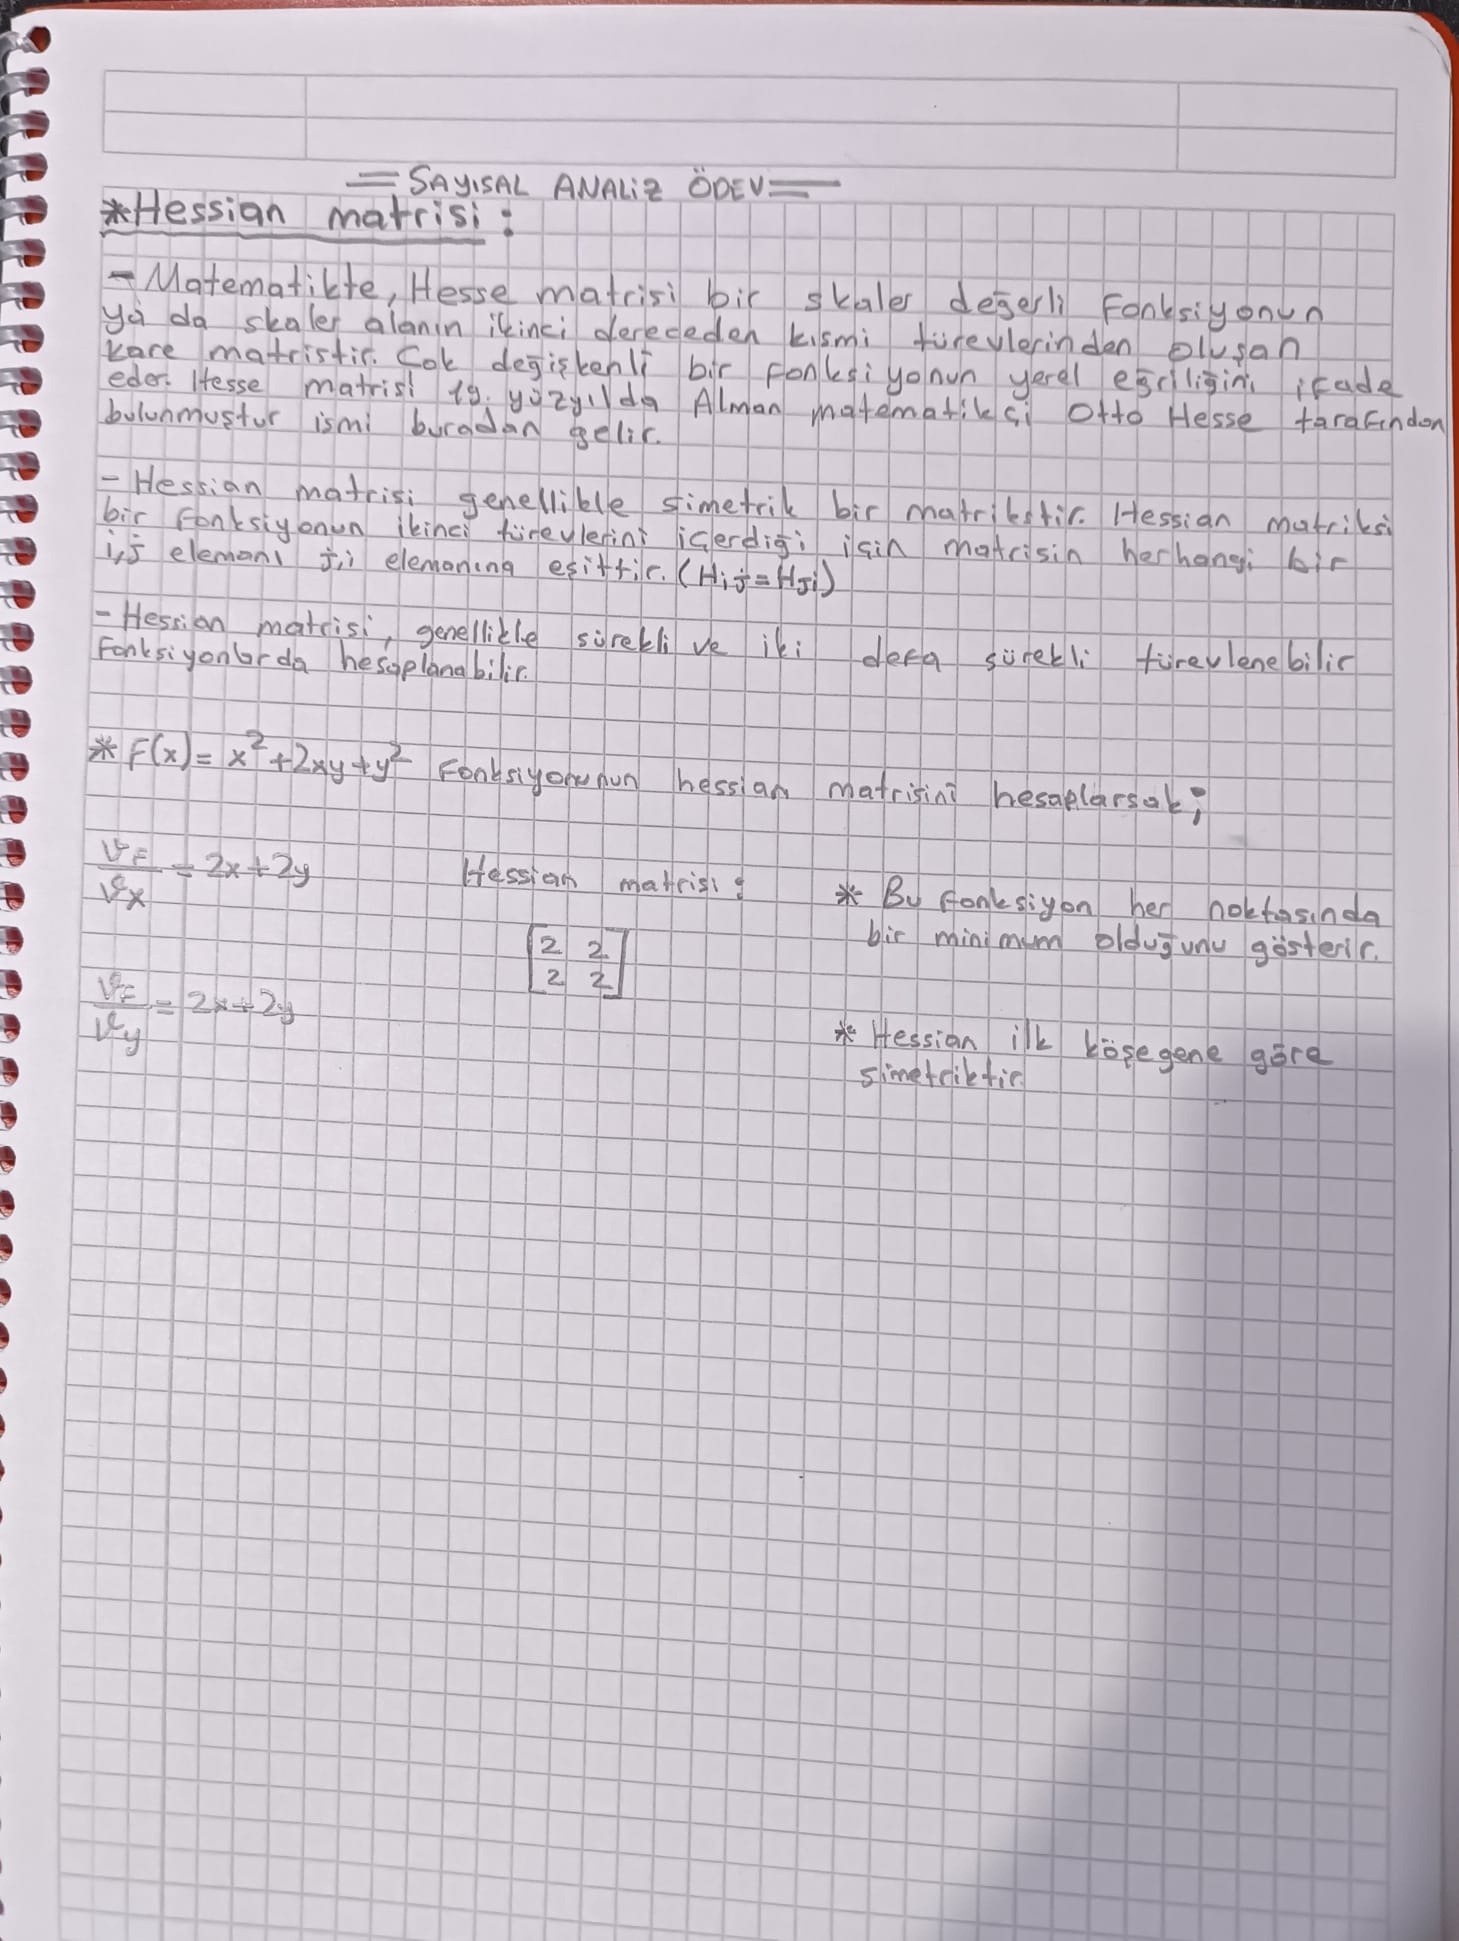 = SAYISAL ANALİZ ÖDEV =
*Hessian matrisi:
- Matematikte, Hesse matrisi bir skaler değerli fonksiyonun
ya da skaler alanın ikinci dereceden kısmi türevlerinden oluşan
kare matristir. Çok değişkenli bir fonksiyonun yerel eğriliğini ifade
eder. Hesse matrisi 19. yüzyılda Alman matematikçi Otto Hesse tarafından
bulunmuştur ismi buradan gelir.
- Hessian matrisi genellikle simetrik bir matrikstir. Hessian matriksi
bir fonksiyonun ikinci türevlerini içerdiği için matrisin herhangi bir
i,j elemanı j,i elemanına eşittir. (Hij = Hji)
- Hessian matrisi, genellikle sürekli ve iki defa sürekli türevlenebilir
fonksiyonlarda hesaplanabilir.
* F(x) = x² + 2xy + y² fonksiyonunun hessian matrisini hesaplarsak;
∂F/∂x = 2x + 2y
Hessian matrisi:
[2 2
2 2]
∂F/∂y = 2x + 2y
* Bu fonksiyon her noktasında
bir minimum olduğunu gösterir.
* Hessian ilk köşegene göre
simetriktir.